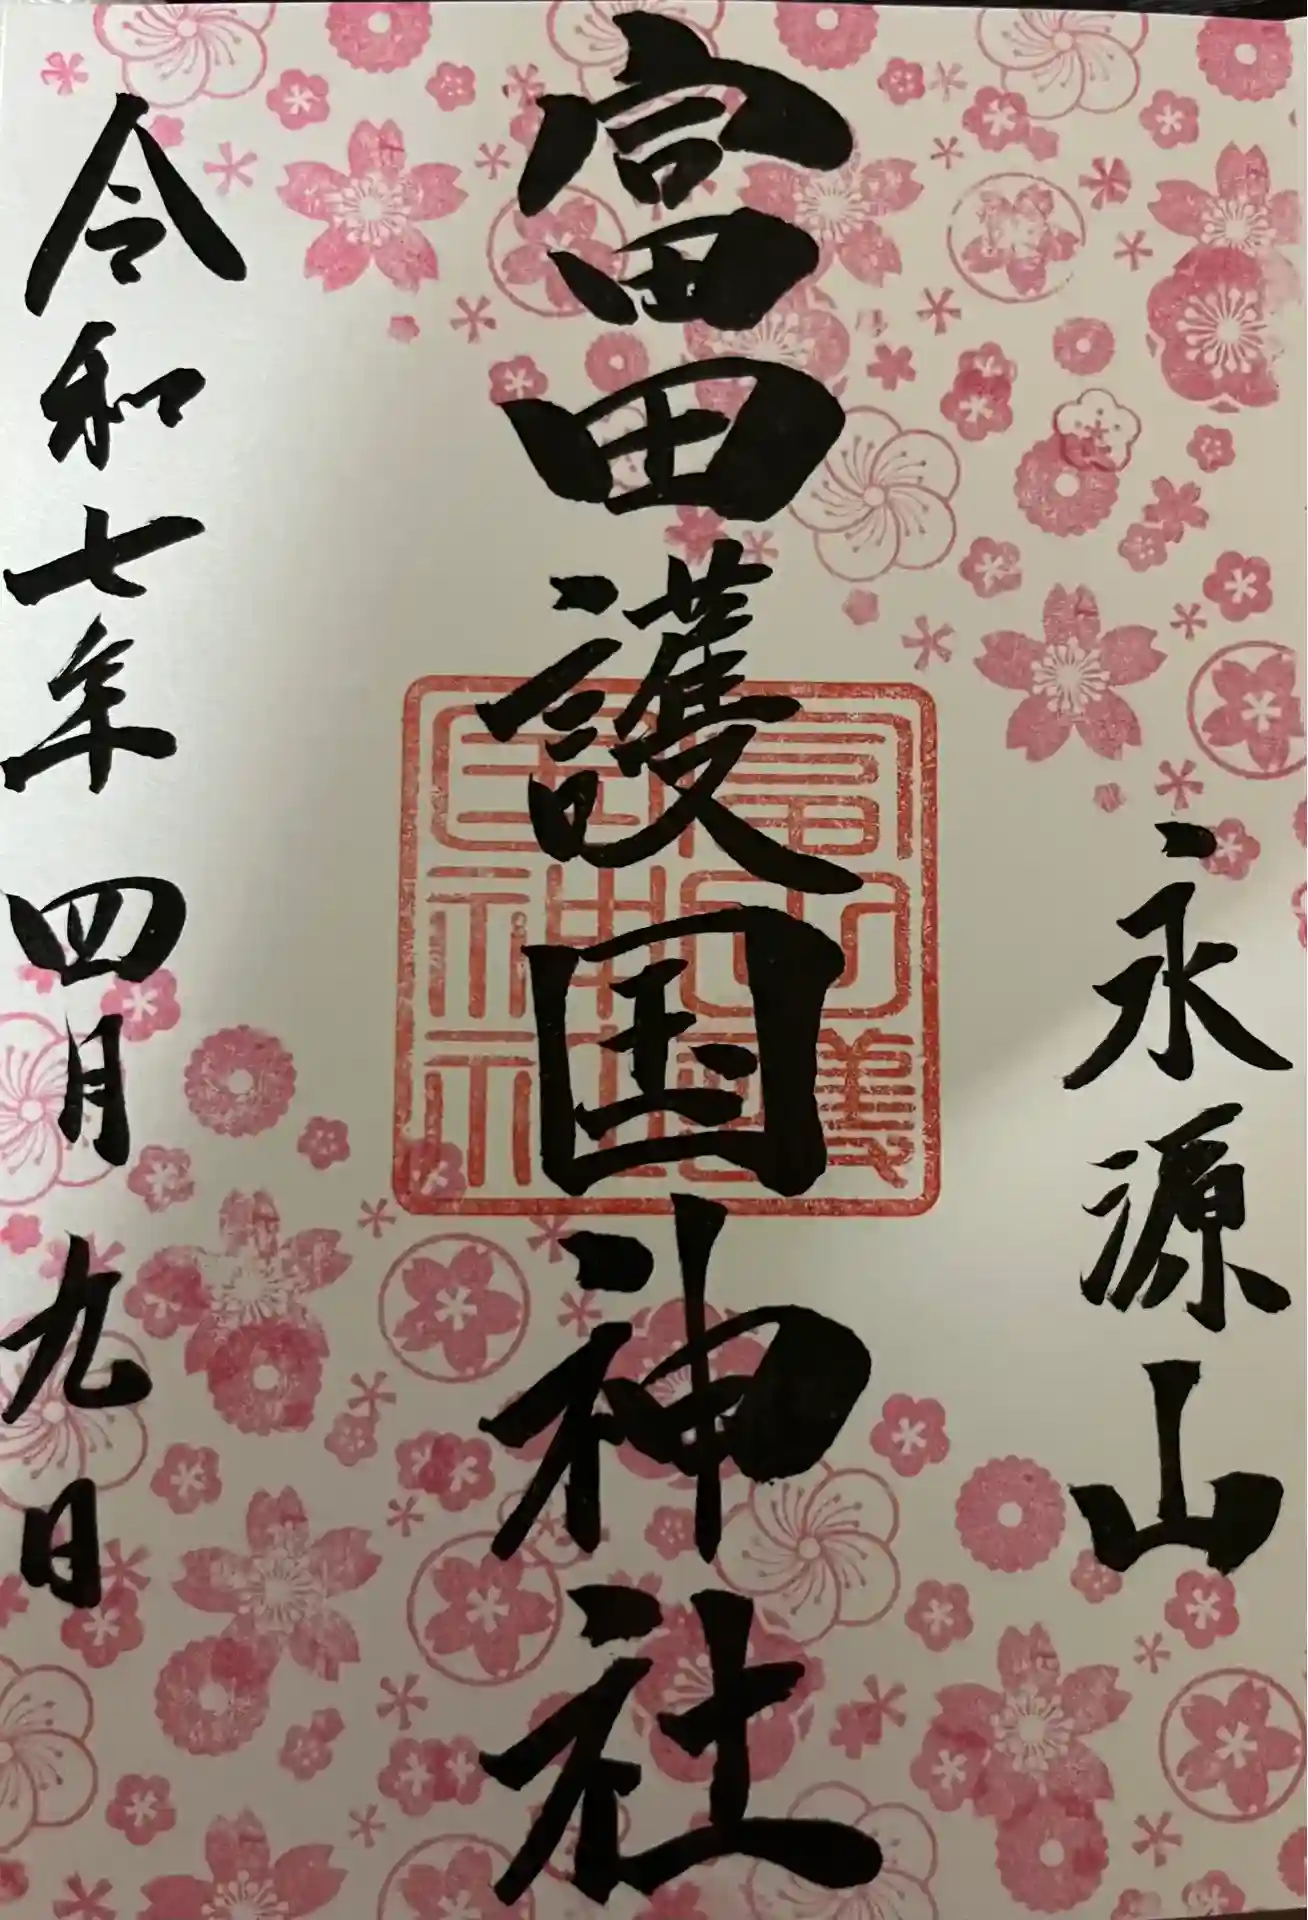 永源山
富田護国神社
令和七年四月九日
富田護国神社